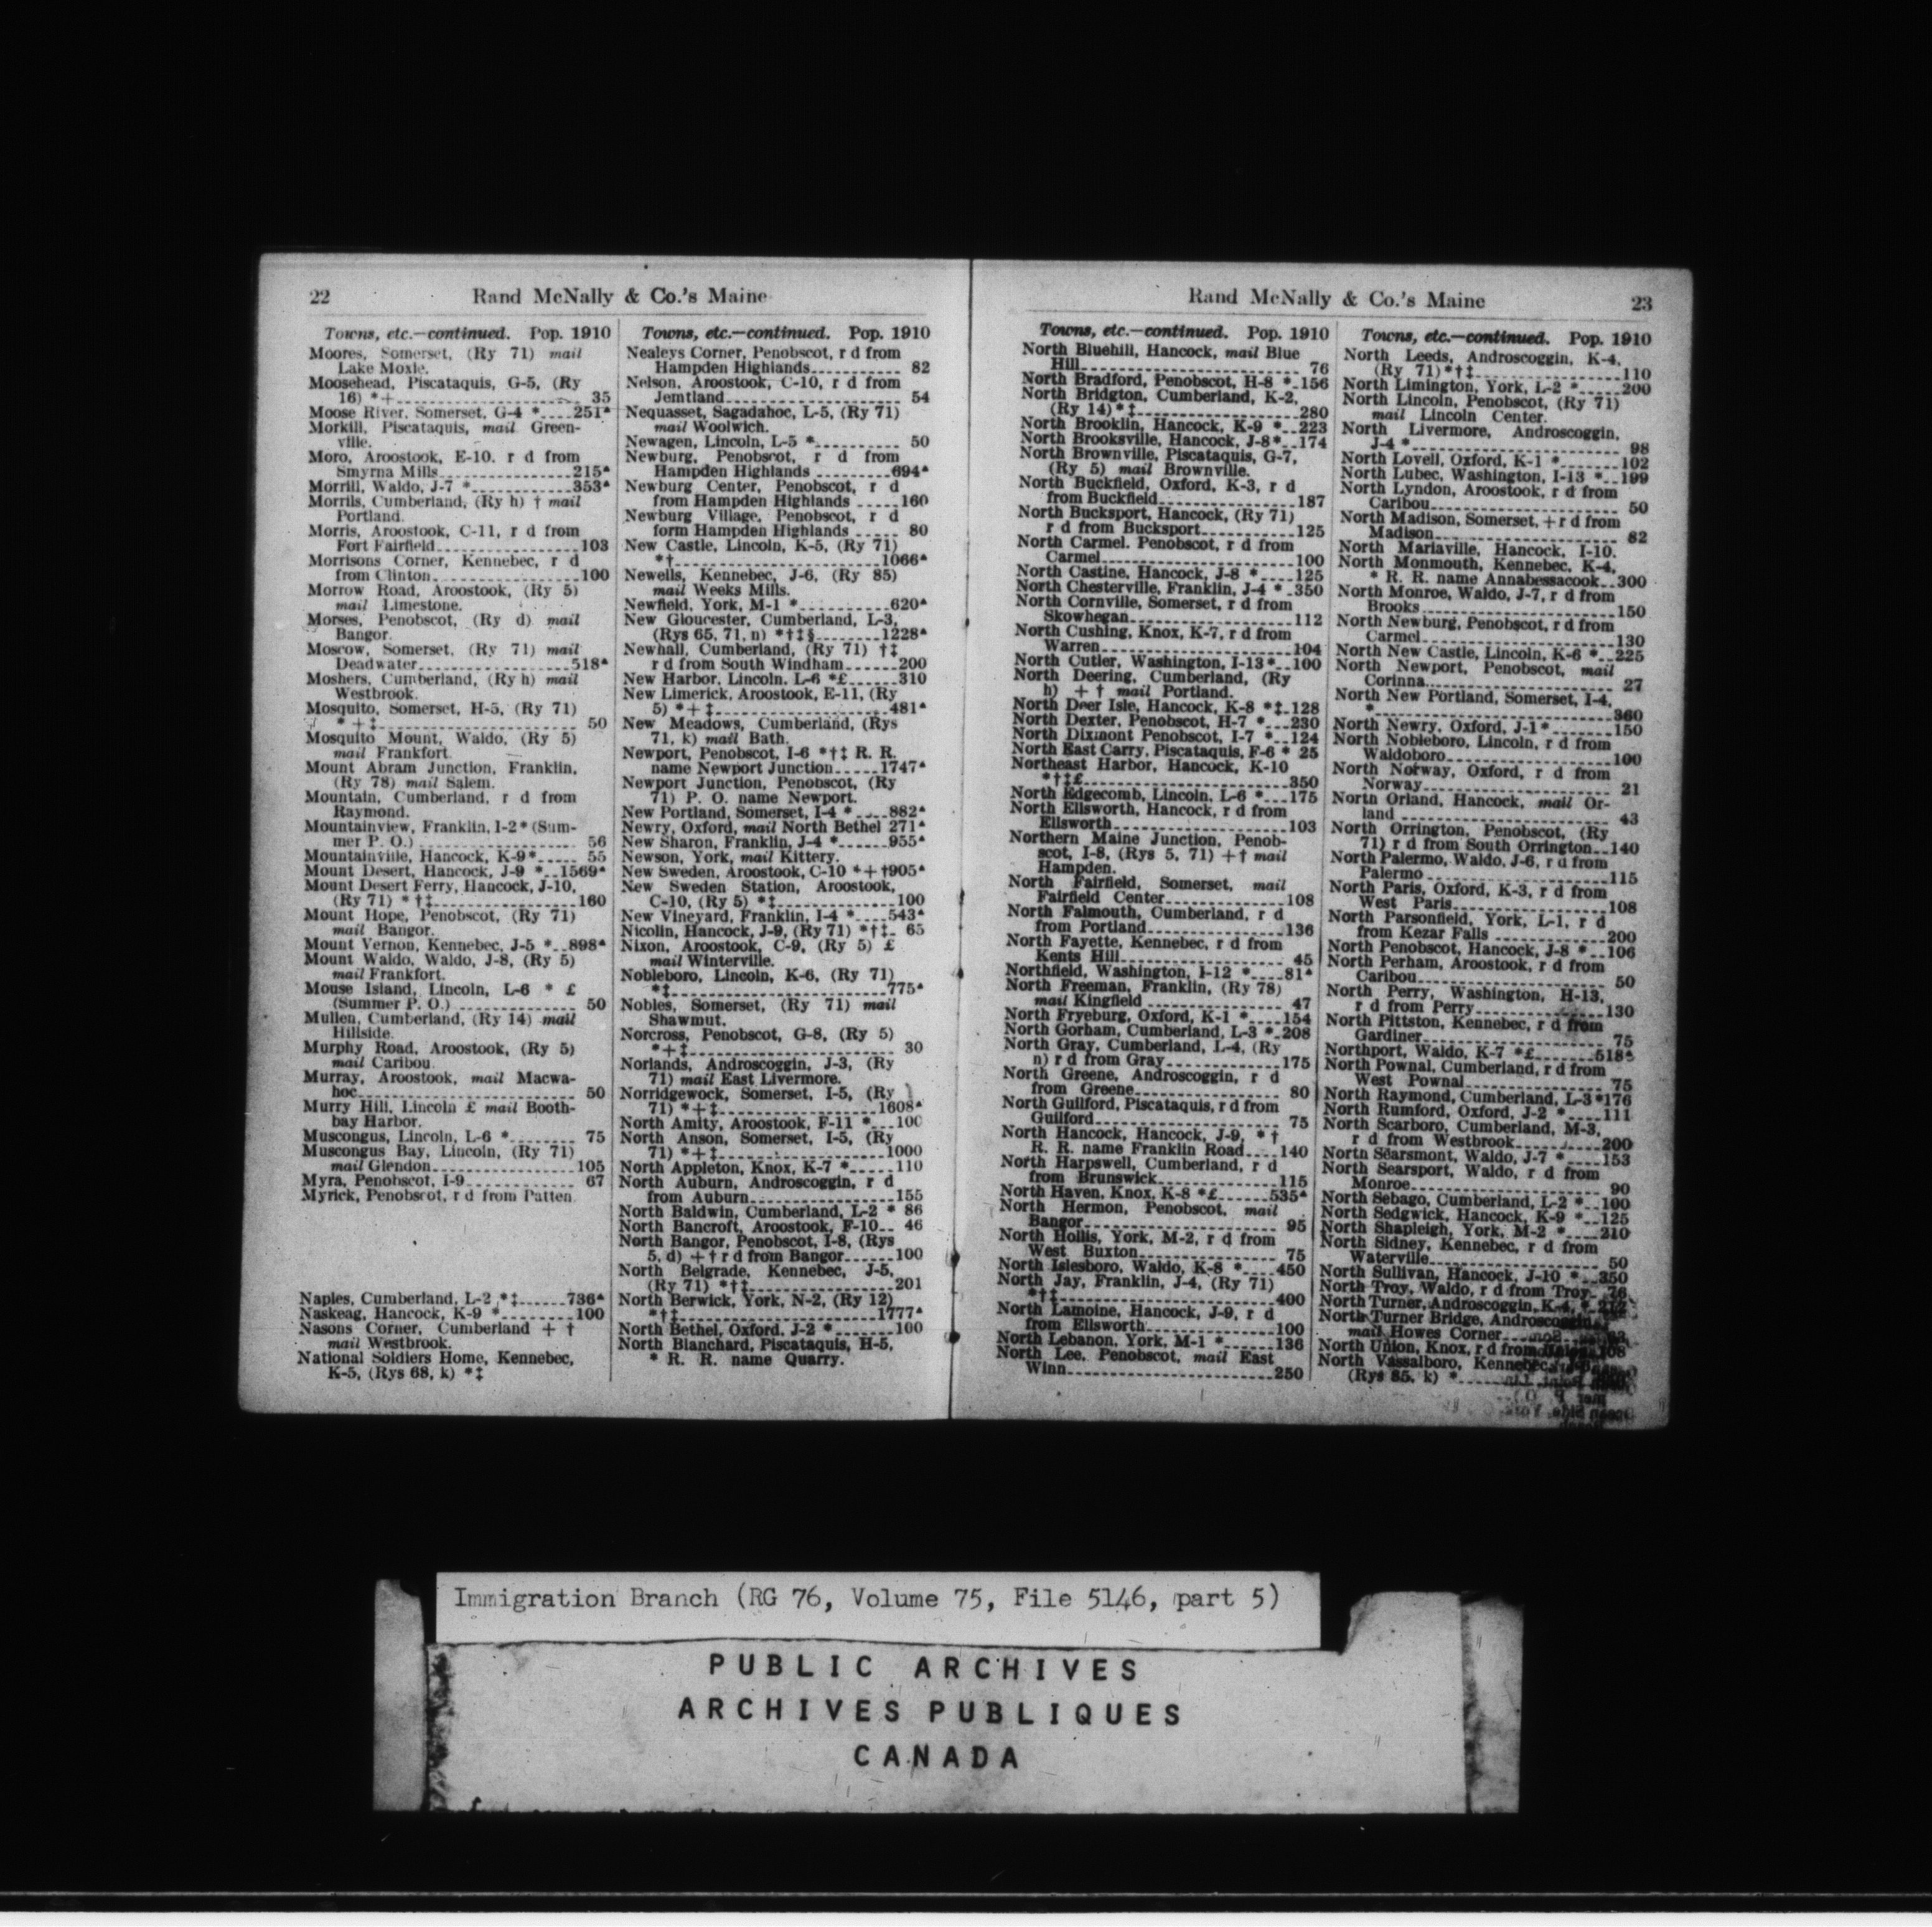 22
Rand McNally & Co.'s Maine
Towns, etc.—continued. Pop. 1910
Moores, Somerset, (Ry 71) mail
Lake Moxie.
Moosehead, Piscataquis, G-5, (Ry
16) *+ 35
Moose River, Somerset, G-4 * 251▲
Morkill, Piscataquis, mail Green-
ville.
Moro, Aroostook, E-10, r d from
Smyrna Mills 215▲
Morrill, Waldo, J-7 * 353▲
Morrils, Cumberland, (Ry h) † mail
Portland.
Morris, Aroostook, C-11, r d from
Fort Fairfield 103
Morrisons Corner, Kennebec, r d
from Clinton 100
Morrow Road, Aroostook, (Ry 5)
mail Limestone.
Morses, Penobscot, (Ry d) mail
Bangor.
Moscow, Somerset, (Ry 71) mail
Deadwater 518▲
Moshers, Cumberland, (Ry h) mail
Westbrook.
Mosquito, Somerset, H-5, (Ry 71)
*+‡ 50
Mosquito Mount, Waldo, (Ry 5)
mail Frankfort.
Mount Abram Junction, Franklin,
(Ry 78) mail Salem.
Mountain, Cumberland, r d from
Raymond.
Mountainview, Franklin, I-2* (Sum-
mer P. O.) 56
Mountainville, Hancock, K-9* 55
Mount Desert, Hancock, J-9 * 1569▲
Mount Desert Ferry, Hancock, J-10,
(Ry 71) *†‡ 160
Mount Hope, Penobscot, (Ry 71)
mail Bangor.
Mount Vernon, Kennebec, J-5 * 898▲
Mount Waldo, Waldo, J-8, (Ry 5)
mail Frankfort.
Mouse Island, Lincoln, L-6 * £
(Summer P. O.) 50
Mullen, Cumberland, (Ry 14) mail
Hillside.
Murphy Road, Aroostook, (Ry 5)
mail Caribou.
Murray, Aroostook, mail Macwa-
hoc 50
Murry Hill, Lincoln £ mail Booth-
bay Harbor.
Muscongus, Lincoln, L-6 * 75
Muscongus Bay, Lincoln, (Ry 71)
mail Glendon 105
Myra, Penobscot, I-9 67
Myrick, Penobscot, r d from Patten
Naples, Cumberland, L-2 *‡ 736▲
Naskeag, Hancock, K-9 * 100
Nasons Corner, Cumberland + †
mail Westbrook.
National Soldiers Home, Kennebec,
K-5, (Rys 68, k) *‡
Towns, etc.—continued. Pop. 1910
Nealeys Corner, Penobscot, r d from
Hampden Highlands 82
Nelson, Aroostook, C-10, r d from
Jemtland 54
Nequasset, Sagadahoc, L-5, (Ry 71)
mail Woolwich.
Newagen, Lincoln, L-5 * 50
Newburg, Penobscot, r d from
Hampden Highlands 694▲
Newburg Center, Penobscot, r d
from Hampden Highlands 160
Newburg Village, Penobscot, r d
form Hampden Highlands 80
New Castle, Lincoln, K-5, (Ry 71)
*† 1066▲
Newells, Kennebec, J-6, (Ry 85)
mail Weeks Mills.
Newfield, York, M-1 * 620▲
New Gloucester, Cumberland, L-3,
(Rys 65, 71, n) *†‡§ 1228▲
Newhall, Cumberland, (Ry 71) †‡
r d from South Windham 200
New Harbor, Lincoln, L-6 *£ 310
New Limerick, Aroostook, E-11, (Ry
5) *+‡ 481▲
New Meadows, Cumberland, (Rys
71, k) mail Bath.
Newport, Penobscot, I-6 *†‡ R. R.
name Newport Junction 1747▲
Newport Junction, Penobscot, (Ry
71) P. O. name Newport.
New Portland, Somerset, I-4 * 882▲
Newry, Oxford, mail North Bethel 271▲
New Sharon, Franklin, J-4 * 955▲
Newson, York, mail Kittery.
New Sweden, Aroostook, C-10 *+†905▲
New Sweden Station, Aroostook,
C-10, (Ry 5) *‡ 100
New Vineyard, Franklin, I-4 * 543▲
Nicolin, Hancock, J-9, (Ry 71) *†‡ 65
Nixon, Aroostook, C-9, (Ry 5) £
mail Winterville.
Nobleboro, Lincoln, K-6, (Ry 71)
*‡ 775▲
Nobles, Somerset, (Ry 71) mail
Shawmut.
Norcross, Penobscot, G-8, (Ry 5)
*+‡ 30
Norlands, Androscoggin, J-3, (Ry
71) mail East Livermore.
Norridgewock, Somerset, I-5, (Ry
71) *+‡ 1608▲
North Amity, Aroostook, F-11 * 100
North Anson, Somerset, I-5, (Ry
71) *+‡ 1000
North Appleton, Knox, K-7 * 110
North Auburn, Androscoggin, r d
from Auburn 155
North Baldwin, Cumberland, L-2 * 86
North Bancroft, Aroostook, F-10 46
North Bangor, Penobscot, I-8, (Rys
5, d) +† r d from Bangor 100
North Belgrade, Kennebec, J-5,
(Ry 71) *†‡ 201
North Berwick, York, N-2, (Ry 12)
*†‡ 1777▲
North Bethel, Oxford, J-2 * 100
North Blanchard, Piscataquis, H-5,
* R. R. name Quarry.
Rand McNally & Co.'s Maine
23
Towns, etc.—continued. Pop. 1910
North Bluehill, Hancock, mail Blue
Hill 76
North Bradford, Penobscot, H-8 * 156
North Bridgton, Cumberland, K-2,
(Ry 14) *‡ 280
North Brooklin, Hancock, K-9 * 223
North Brooksville, Hancock, J-8* 174
North Brownville, Piscataquis, G-7,
(Ry 5) mail Brownville.
North Buckfield, Oxford, K-3, r d
from Buckfield 187
North Bucksport, Hancock, (Ry 71)
r d from Bucksport 125
North Carmel, Penobscot, r d from
Carmel 100
North Castine, Hancock, J-8 * 125
North Chesterville, Franklin, J-4 * 350
North Cornville, Somerset, r d from
Skowhegan 112
North Cushing, Knox, K-7, r d from
Warren 104
North Cutler, Washington, I-13* 100
North Deering, Cumberland, (Ry
h) +† mail Portland.
North Deer Isle, Hancock, K-8 *‡ 128
North Dexter, Penobscot, H-7 * 230
North Dixmont Penobscot, I-7 * 124
North East Carry, Piscataquis, F-6 * 25
Northeast Harbor, Hancock, K-10
*†‡£ 350
North Edgecomb, Lincoln, L-6 * 175
North Ellsworth, Hancock, r d from
Ellsworth 103
Northern Maine Junction, Penob-
scot, I-8, (Rys 5, 71) +† mail
Hampden.
North Fairfield, Somerset, mail
Fairfield Center 108
North Falmouth, Cumberland, r d
from Portland 136
North Fayette, Kennebec, r d from
Kents Hill 45
Northfield, Washington, I-12 * 81▲
North Freeman, Franklin, (Ry 78)
mail Kingfield 47
North Fryeburg, Oxford, K-1 * 154
North Gorham, Cumberland, L-3 * 208
North Gray, Cumberland, L-4, (Ry
n) r d from Gray 175
North Greene, Androscoggin, r d
from Greene 80
North Guilford, Piscataquis, r d from
Guilford 75
North Hancock, Hancock, J-9, *†
R. R. name Franklin Road 140
North Harpswell, Cumberland, r d
from Brunswick 115
North Haven, Knox, K-8 *£ 535▲
North Hermon, Penobscot, mail
Bangor 95
North Hollis, York, M-2, r d from
West Buxton 75
North Islesboro, Waldo, K-8 * 450
North Jay, Franklin, J-4, (Ry 71)
*†‡ 400
North Lamoine, Hancock, J-9, r d
from Ellsworth 100
North Lebanon, York, M-1 * 136
North Lee, Penobscot, mail East
Winn 250
Towns, etc.—continued. Pop. 1910
North Leeds, Androscoggin, K-4,
(Ry 71)*†‡ 110
North Limington, York, L-2 * 200
North Lincoln, Penobscot, (Ry 71)
mail Lincoln Center.
North Livermore, Androscoggin,
J-4 * 98
North Lovell, Oxford, K-1 * 102
North Lubec, Washington, I-13 * 199
North Lyndon, Aroostook, r d from
Caribou 50
North Madison, Somerset, + r d from
Madison 82
North Mariaville, Hancock, I-10.
North Monmouth, Kennebec, K-4,
* R. R. name Annabessacook 300
North Monroe, Waldo, J-7, r d from
Brooks 150
North Newburg, Penobscot, r d from
Carmel 130
North New Castle, Lincoln, K-6 * 225
North Newport, Penobscot, mail
Corinna 27
North New Portland, Somerset, I-4,
* 360
North Newry, Oxford, J-1* 150
North Nobleboro, Lincoln, r d from
Waldoboro 100
North Norway, Oxford, r d from
Norway 21
North Orland, Hancock, mail Or-
land 43
North Orrington, Penobscot, (Ry
71) r d from South Orrington 140
North Palermo, Waldo, J-6, r d from
Palermo 115
North Paris, Oxford, K-3, r d from
West Paris 108
North Parsonfield, York, L-1, r d
from Kezar Falls 200
North Penobscot, Hancock, J-8 * 106
North Perham, Aroostook, r d from
Caribou 50
North Perry, Washington, H-13,
r d from Perry 130
North Pittston, Kennebec, r d from
Gardiner 75
Northport, Waldo, K-7 *£ 518▲
North Pownal, Cumberland, r d from
West Pownal 75
North Raymond, Cumberland, L-3 *176
North Rumford, Oxford, J-2 * 111
North Scarboro, Cumberland, M-3,
r d from Westbrook 200
North Searsmont, Waldo, J-7 * 153
North Searsport, Waldo, r d from
Monroe 90
North Sebago, Cumberland, L-2 * 100
North Sedgwick, Hancock, K-9 * 125
North Shapleigh, York, M-2 * 210
North Sidney, Kennebec, r d from
Waterville 50
North Sullivan, Hancock, J-10 * 350
North Troy, Waldo, r d from Troy 76
North Turner, Androscoggin, K-4, *
North Turner Bridge, Androscoggin,
mail Howes Corner
North Union, Knox, r d from
North Vassalboro, Kennebec,
(Rys 85, k) *
Immigration Branch (RG 76, Volume 75, File 5146, part 5)
PUBLIC ARCHIVES
ARCHIVES PUBLIQUES
CANADA